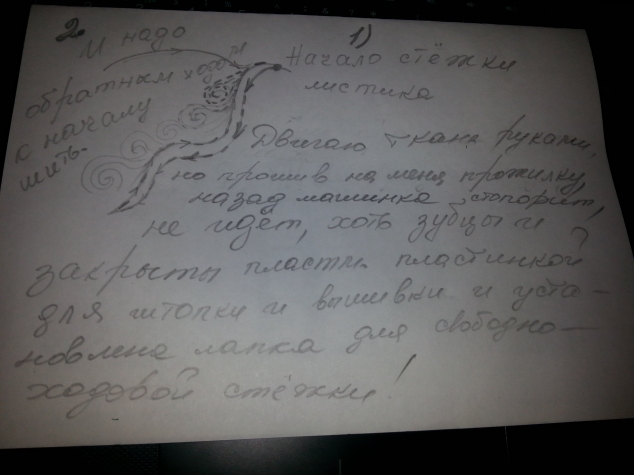 2.
И надо
обратным ходом
к началу
шить.
1)
Начало стёжки
листика
Двигаю ткань руками,
но прошив на меня прожилку,
назад машинка стопорит,
не идёт, хоть зубцы и
закрыты пласти. пластинкой
для штопки и вышивки и уста-
новлена лапка для свободно-
ходовой стёжки!
?